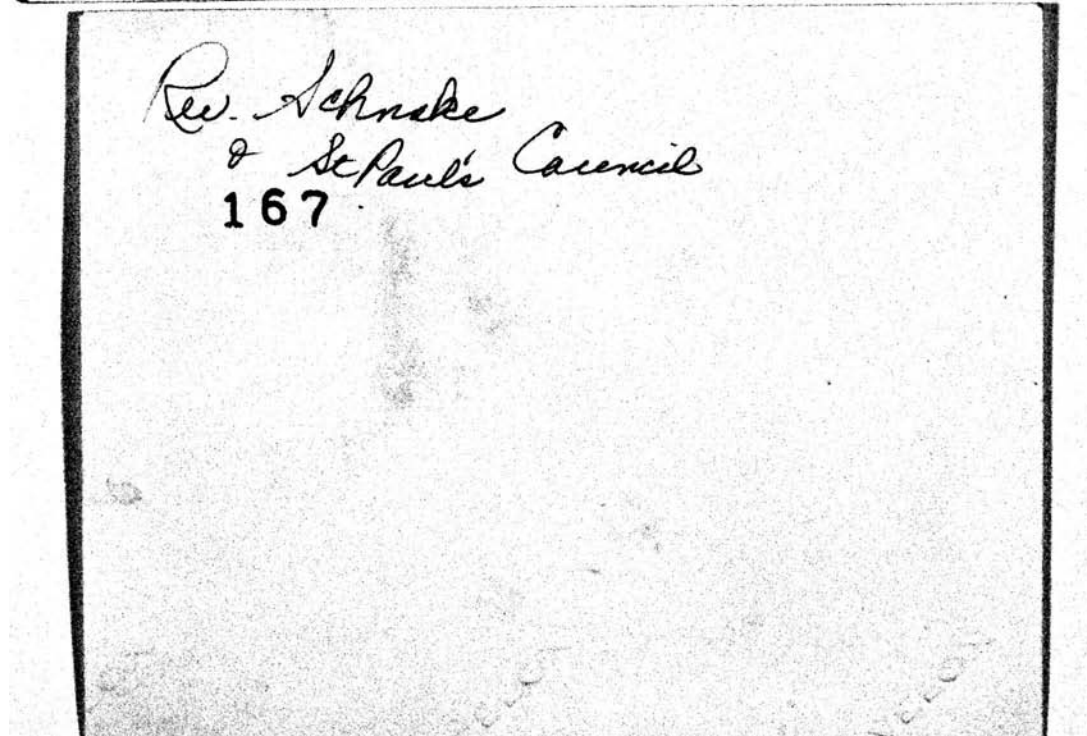 Rev. Schnake
& St Paul's Council
167